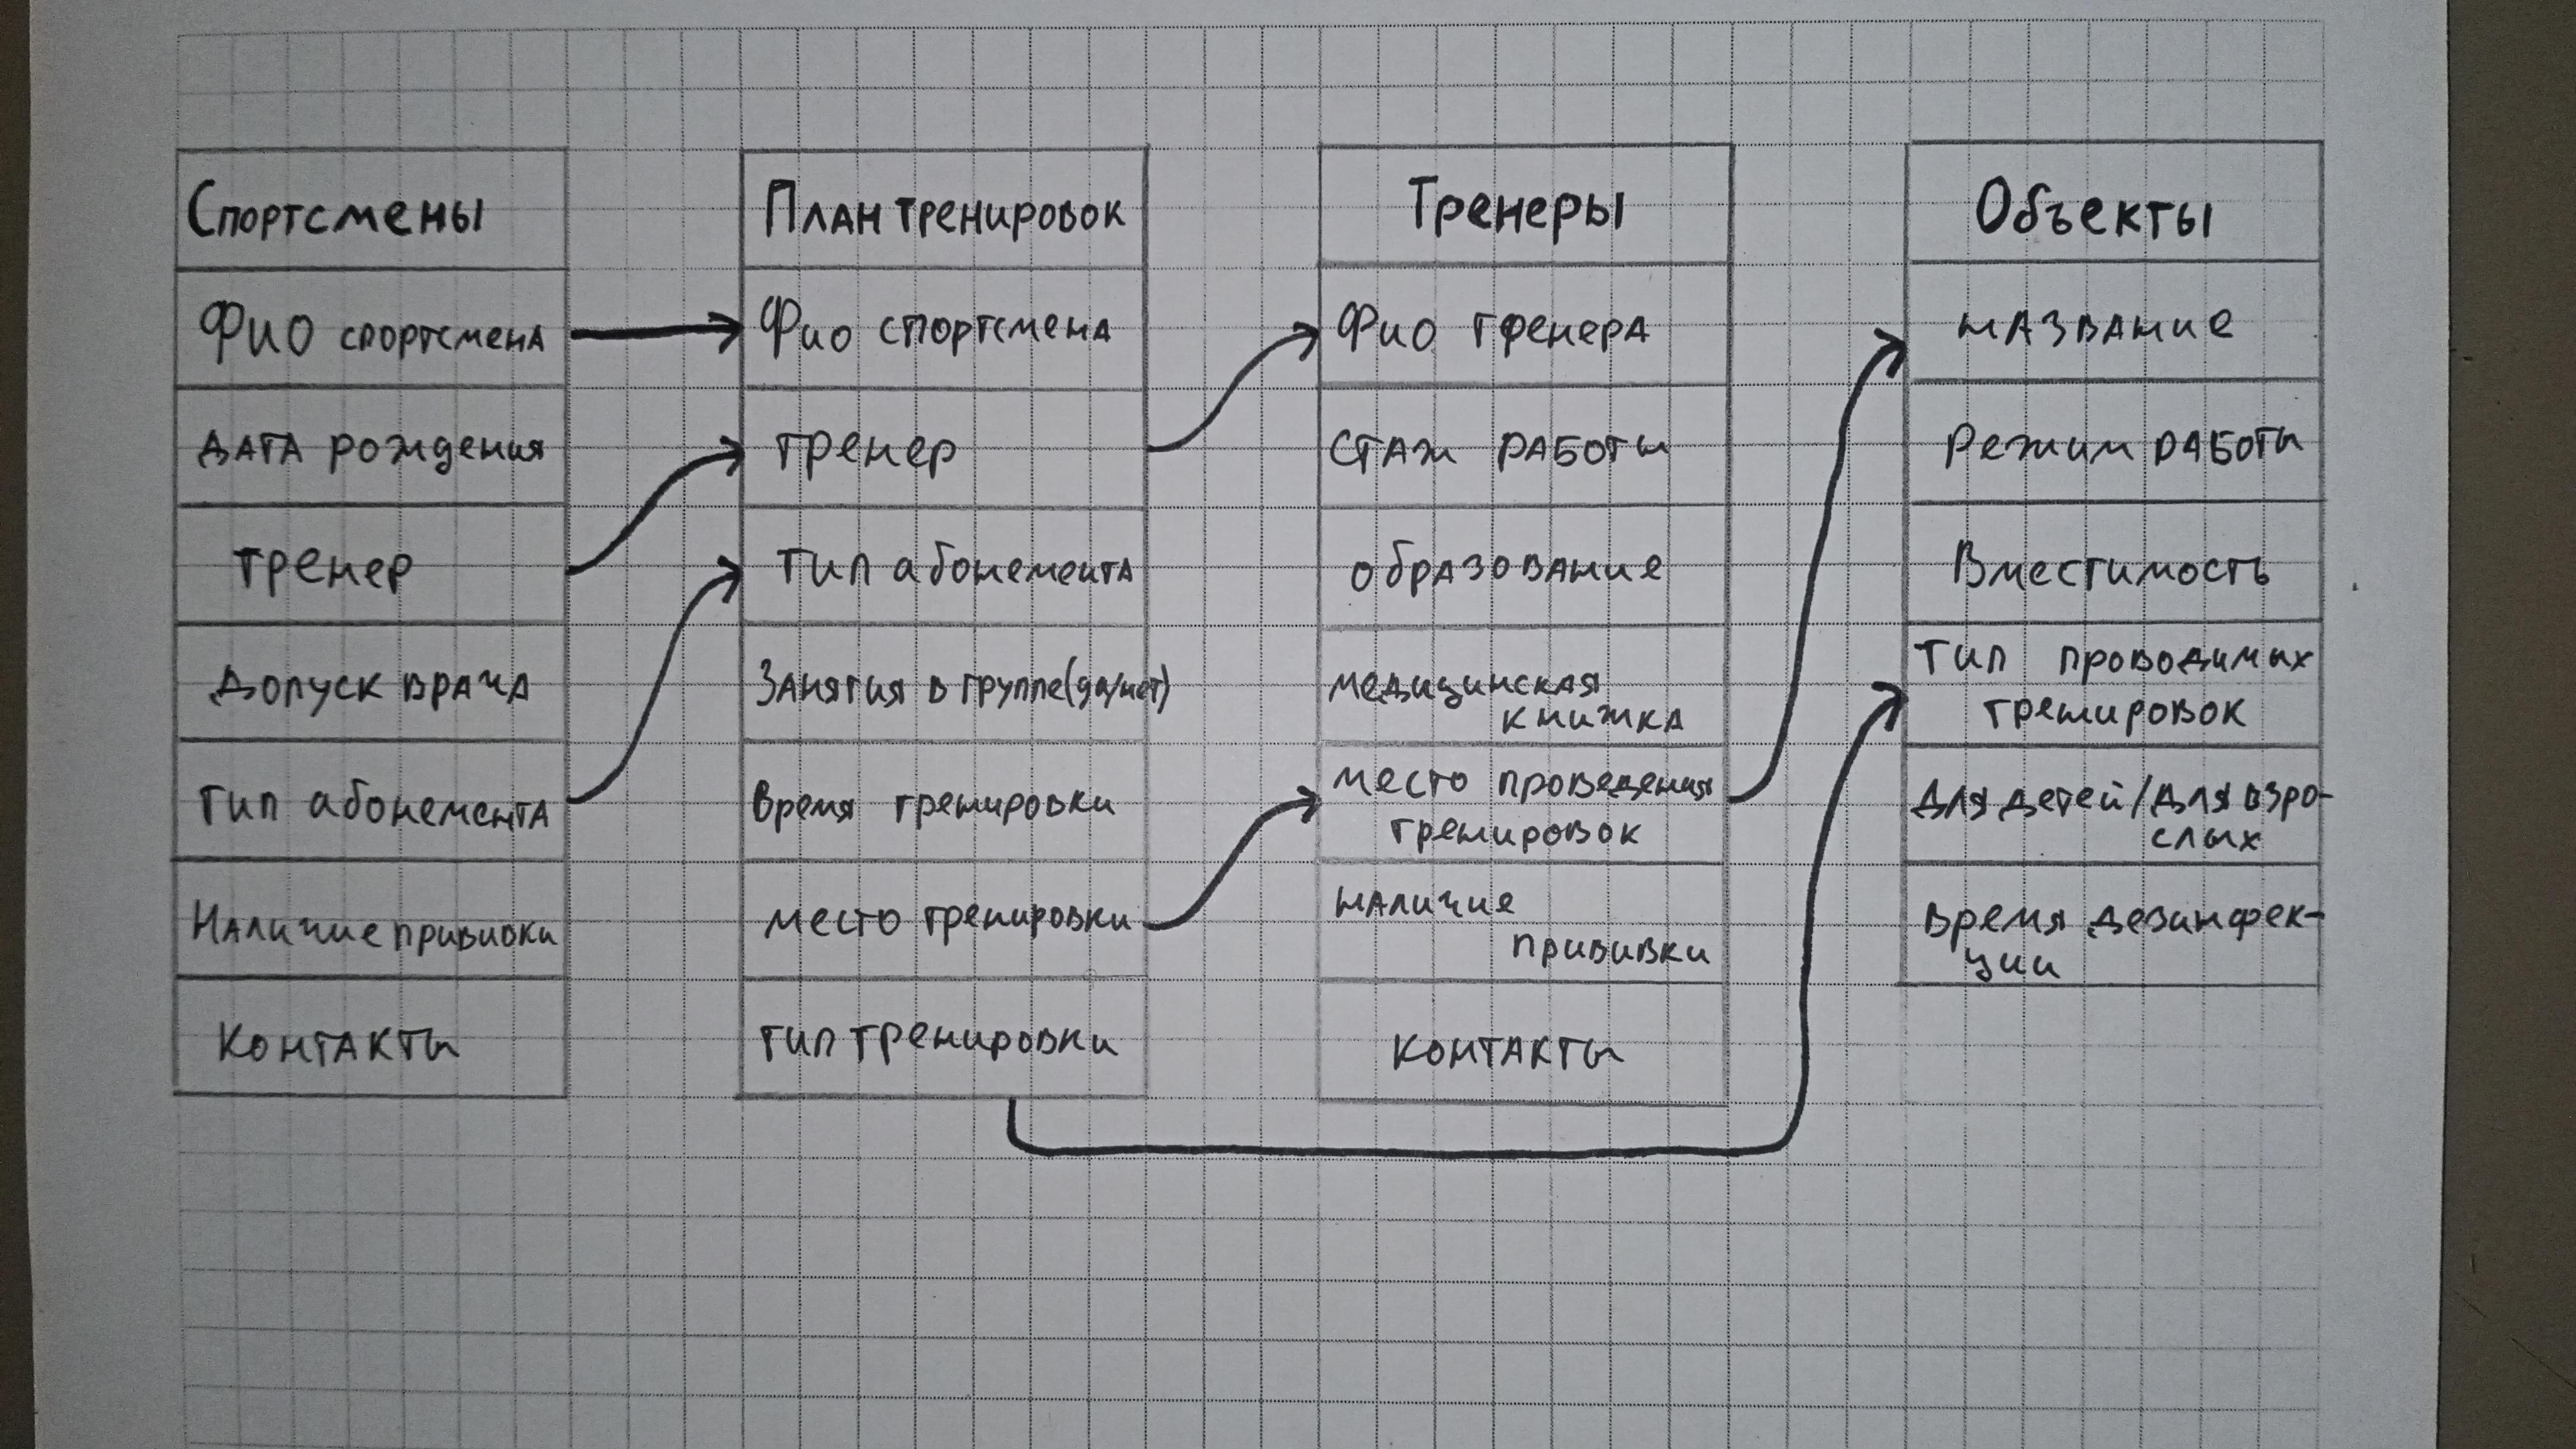 Спортсмены
Фио спортсмена
дата рождения
тренер
допуск врача
тип абонемента
Наличие прививки
контакты
План тренировок
Фио спортсмена
тренер
тип абонемента
Занятия в группе(да/нет)
время тренировки
место тренировки
тип тренировки
Тренеры
Фио тренера
стаж работы
образование
медицинская
книжка
место проведения
тренировок
наличие
прививки
контакты
Объекты
название
Режим работы
Вместимость
тип проводимых
тренировок
для детей/для взро-
слых
время дезинфек-
ции